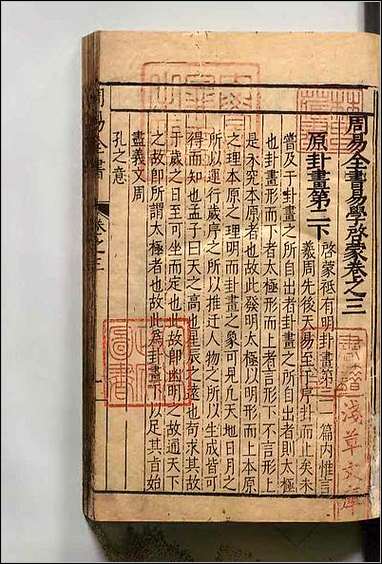 周易全書易學啓蒙卷之三
原卦畫第二下
啓蒙秖有明卦畫第二一篇内惟言
羲周先後天易至于序卦而止矣未
嘗及于卦畫之所自出者卦畫之所自出者則太極
也卦畫形而下者太極形而上者言形下不言形上
是未究本原者也故此發明太極以明形而上本原
之理本原之理明而卦畫之象可見凢天地日月之
所以運行歲序之所以推迁人物之所以生成皆可
得而知也孟子曰天之高也星辰之遠也苟求其故
千歲之日至可坐而定也此故即幽明之故通天下
之故即所謂太極者也故此為卦畫下以足其首始
畫義文周
孔之意
周易全書
卷之三
淺草文庫